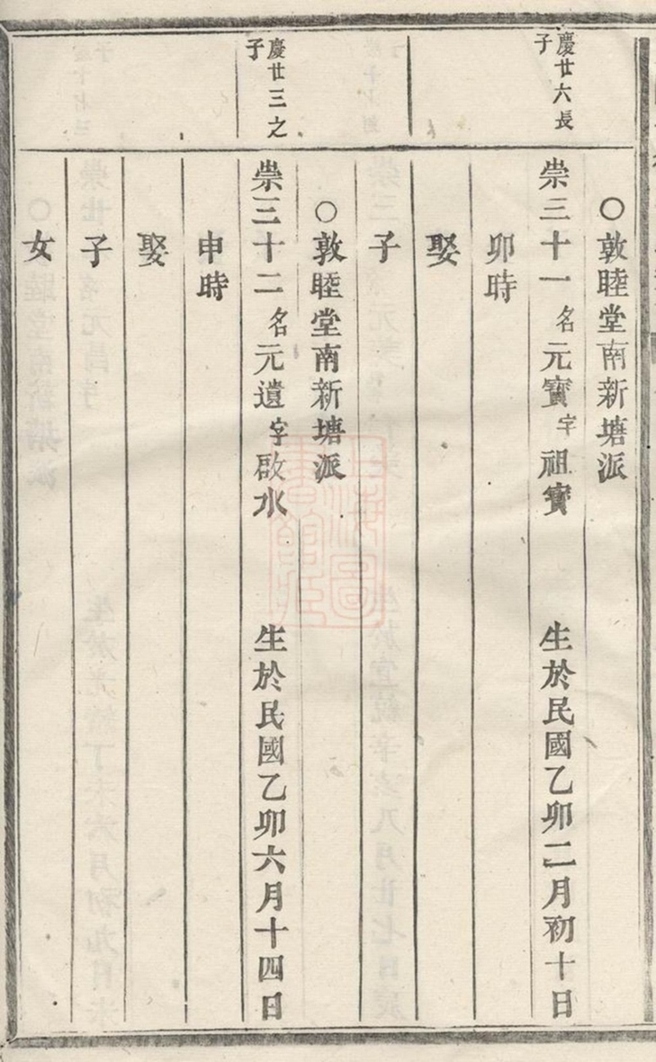 慶廿六長
子
○敦睦堂南新塘派
崇三十一名元寶字祖寶 生於民國乙卯二月初十日
卯時
娶
子
慶廿三之
子
○敦睦堂南新塘派
崇三十二名元遺字啟水 生於民國乙卯六月十四日
申時
娶
子
女